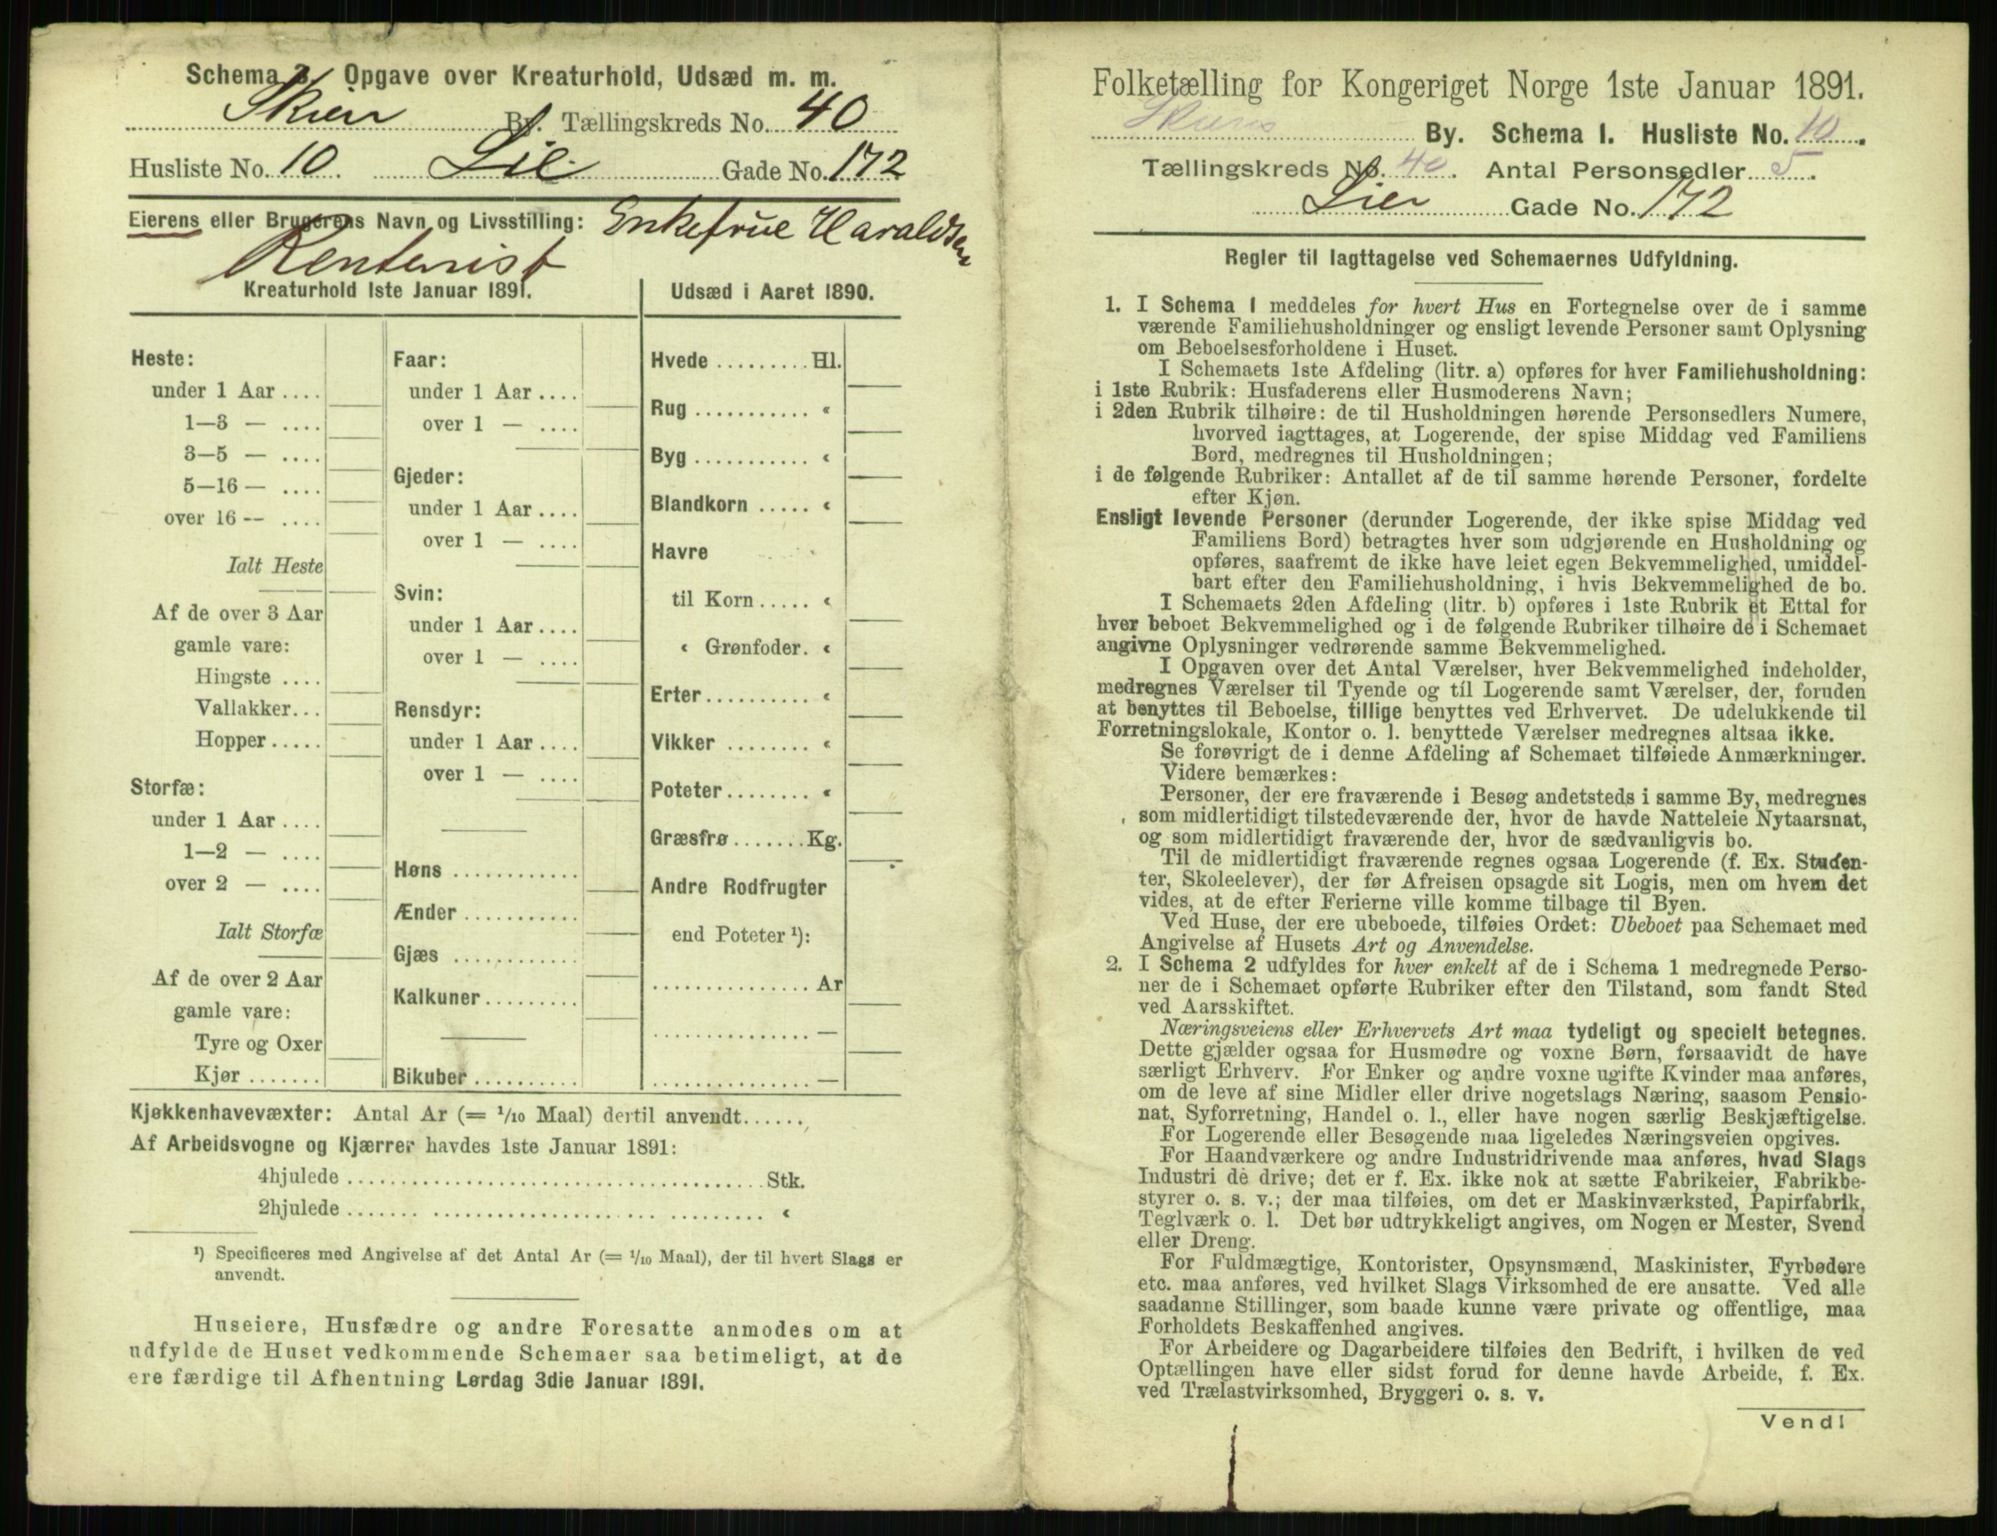 Schema 3. Opgave over Kreaturhold, Udsæd m. m.
Skien By. Tællingskreds No. 40
Husliste No. 10. Lie Gade No. 172
Eierens eller Brugerens Navn og Livsstilling: Enkefrue Haraldsen
Rentenist
Kreaturhold 1ste Januar 1891.
Heste:
under 1 Aar ....
1—3 — ....
3—5 — ....
5—16 — ....
over 16 -- ....
Ialt Heste
Af de over 3 Aar
gamle vare:
Hingste ....
Vallakker...
Hopper.....
Storfæ:
under 1 Aar ....
1—2 — ....
over 2 — ....
Ialt Storfæ
Af de over 2 Aar
gamle vare:
Tyre og Oxer
Kjør .......
Faar:
under 1 Aar ....
over 1 — ....
Gjeder:
under 1 Aar ....
over 1 — ....
Svin:
under 1 Aar ....
over 1 — ....
Rensdyr:
under 1 Aar ....
over 1 — ....
Høns ............
Ænder ...........
Gjæs ............
Kalkuner.........
Bikuber ..........
Udsæd i Aaret 1890.
Hvede ......... Hl.
Rug ........... «
Byg ........... «
Blandkorn ..... «
Havre
til Korn ..... «
« Grønfoder. «
Erter .......... «
Vikker ......... «
Poteter ........ «
Græsfrø ....... Kg.
Andre Rodfrugter
end Poteter ¹):
............... Ar
............... —
............... —
Kjøkkenhavevæxter: Antal Ar (= 1/10 Maal) dertil anvendt......
Af Arbeidsvogne og Kjærrer havdes 1ste Januar 1891:
4hjulede ........................................ Stk.
2hjulede ........................................ «
¹) Specificeres med Angivelse af det Antal Ar (= 1/10 Maal), der til hvert Slags er
anvendt.
Huseiere, Husfædre og andre Foresatte anmodes om at
udfylde de Huset vedkommende Schemaer saa betimeligt, at de
ere færdige til Afhentning Lørdag 3die Januar 1891.
Folketælling for Kongeriget Norge 1ste Januar 1891.
Skiens By. Schema 1. Husliste No. 10.
Tællingskreds No. 40. Antal Personsedler 5.
Lier Gade No. 172
Regler til Iagttagelse ved Schemaernes Udfyldning.
1. I Schema 1 meddeles for hvert Hus en Fortegnelse over de i samme
værende Familiehusholdninger og ensligt levende Personer samt Oplysning
om Beboelsesforholdene i Huset.
I Schemaets 1ste Afdeling (litr. a) opføres for hver Familiehusholdning:
i 1ste Rubrik: Husfaderens eller Husmoderens Navn;
i 2den Rubrik tilhøire: de til Husholdningen hørende Personsedlers Numere,
hvorved iagttages, at Logerende, der spise Middag ved Familiens
Bord, medregnes til Husholdningen;
i de følgende Rubriker: Antallet af de til samme hørende Personer, fordelte
efter Kjøn.
Ensligt levende Personer (derunder Logerende, der ikke spise Middag ved
Familiens Bord) betragtes hver som udgjørende en Husholdning og
opføres, saafremt de ikke have leiet egen Bekvemmelighed, umiddel-
bart efter den Familiehusholdning, i hvis Bekvemmelighed de bo.
I Schemaets 2den Afdeling (litr. b) opføres i 1ste Rubrik et Ettal for
hver beboet Bekvemmelighed og i de følgende Rubriker tilhøire de i Schemaet
angivne Oplysninger vedrørende samme Bekvemmelighed.
I Opgaven over det Antal Værelser, hver Bekvemmelighed indeholder,
medregnes Værelser til Tyende og til Logerende samt Værelser, der, foruden
at benyttes til Beboelse, tillige benyttes ved Erhvervet. De udelukkende til
Forretningslokale, Kontor o. l. benyttede Værelser medregnes altsaa ikke.
Se forøvrigt de i denne Afdeling af Schemaet tilføiede Anmærkninger.
Videre bemærkes:
Personer, der ere fraværende i Besøg andetsteds i samme By, medregnes
som midlertidigt tilstedeværende der, hvor de havde Natteleie Nytaarsnat,
og som midlertidigt fraværende der, hvor de sædvanligvis bo.
Til de midlertidigt fraværende regnes ogsaa Logerende (f. Ex. Studen-
ter, Skoleelever), der før Afreisen opsagde sit Logis, men om hvem det
vides, at de efter Ferierne ville komme tilbage til Byen.
Ved Huse, der ere ubeboede, tilføies Ordet: Ubeboet paa Schemaet med
Angivelse af Husets Art og Anvendelse.
2. I Schema 2 udfyldes for hver enkelt af de i Schema 1 medregnede Perso-
ner de i Schemaet opførte Rubriker efter den Tilstand, som fandt Sted
ved Aarsskiftet.
Næringsveiens eller Erhvervets Art maa tydeligt og specielt betegnes.
Dette gjælder ogsaa for Husmødre og voxne Børn, forsaavidt de have
særligt Erhverv. For Enker og andre voxne ugifte Kvinder maa anføres,
om de leve af sine Midler eller drive nogetslags Næring, saasom Pensio-
nat, Syforretning, Handel o. l., eller have nogen særlig Beskjæftigelse.
For Logerende eller Besøgende maa ligeledes Næringsveien opgives.
For Haandværkere og andre Industridrivende maa anføres, hvad Slags
Industri de drive; det er f. Ex. ikke nok at sætte Fabrikeier, Fabrikbe-
styrer o. s. v.; der maa tilføies, om det er Maskinværksted, Papirfabrik,
Teglværk o. l. Det bør udtrykkeligt angives, om Nogen er Mester, Svend
eller Dreng.
For Fuldmægtige, Kontorister, Opsynsmænd, Maskinister, Fyrbødere
etc. maa anføres, ved hvilket Slags Virksomhed de ere ansatte. Ved alle
saadanne Stillinger, som baade kunne være private og offentlige, maa
Forholdets Beskaffenhed angives.
For Arbeidere og Dagarbeidere tilføies den Bedrift, i hvilken de ved
Optællingen have eller sidst forud for denne havde Arbeide, f. Ex.
ved Trælastvirksomhed, Bryggeri o. s. v.
Vend!